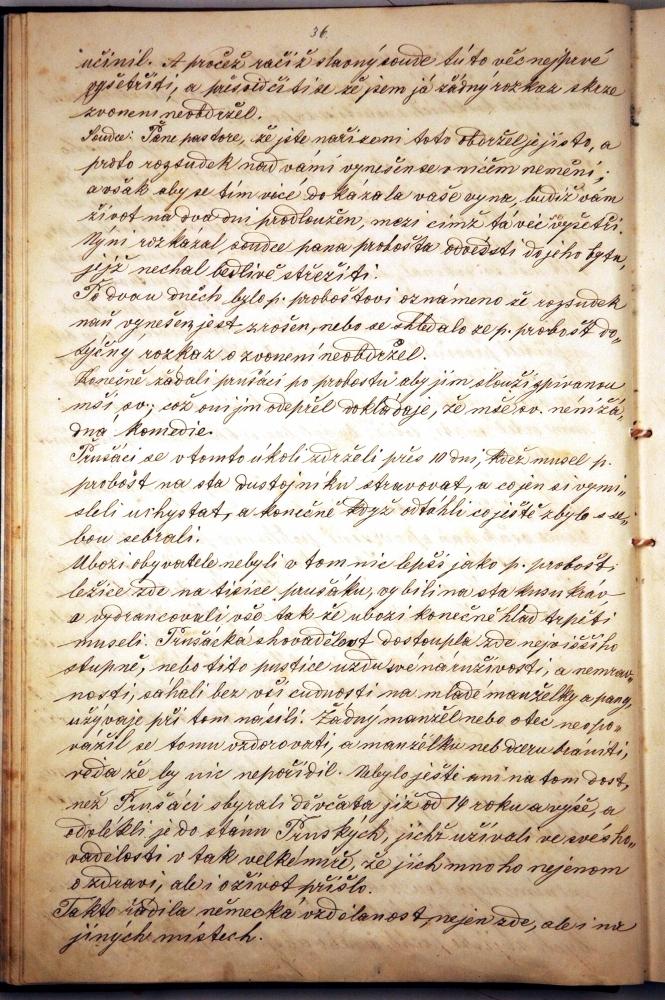 36.
učinil. A pročež račiž slavný soude túto věc nejprvé
vyšetřiti, a přisvědčiti se že jsem já žádný rozkaz skrze
zvonení neobdržel.
Soudce: Pane pastore, že jste nařízení toto obdržel je jisto, a
proto rozsudek nad vámi vynešen se v ničem nemění;
avšak aby se tím vícé dokázala vaše vyna, budiž vám
život na dva dni prodloužen, mezi čímž ta véc vyšetří.
Nýni rozkázal soudce pana probošta odvésti do jeho bytu,
jejž nechal bedlivě střežiti.
Po dvou dněch bylo p. proboštovi oznámeno že rozsudek
naň vynešen jest zrošen, nebo se shledalo že p. probošt do„
tyčný rozkaz o zvonení neobdržel.
Konečně žádali prušáci po proboštů aby jim slouží zpívanou
mši sv.; což on jim odepřel dokládaje, že mše sv. není žá„
dna komedie.
Prušáci se v tomto úkoli zdrželi přes 10 dni, kdež musel p.
probošt na sta dustojniku stravovat, a co jen si vymi„
sleli uchystat, a konečně když odtáhli co ještě zbylo s se„
bou sebrali.
Ubozi obyvatele nebyli v tom nic lepší jako p. probošt;
ležíce zde na tisice prušáku, vybili na sta kusu kráv
a vydrancovali všo tak že ubozi konečně hlad trpěti
museli. Prušácka shovadělost dostoupla zde nejvišsího
stupně, nebo tito pustice uzdu sve náruživosti, a nemrav„
nosti, sáhali bez vší cudnosti na mlade manželky a pany,
užývaje při tom násilí. Žadný manžel nebo otec neopo„
vážil se tomu vzdorovati, a manželku neb dceru braniti,
věda že by nic nepořídil. Nebylo ještě ani na tom dost,
než Prušáci sbyrali děvčata již od 14 roku a výše, a
odvlékli je do stánu Pruskych, jichž užívali ve své sho„
vadělosti v tak velke míře, že jich mnoho nejenom
o zdraví, ale i o život přišlo.
Takto řádila německá vzdělanost, nejen zde, ale i na
jiných místech.